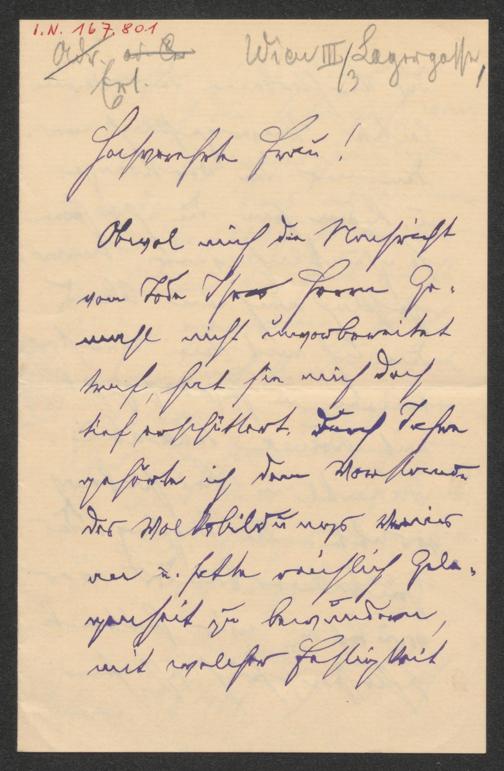 I.N. 167.801
Adr.
Erl.
Wien III/3 Lagergasse 1
Hochverehrte Frau!
Obwol mich die Nachricht
vom Tode Ihres Herrn Ge-
mahl nicht unvorbereitet
traf, hat sie mich doch
tief erschüttert. Durch Jahre
gehörte ich dem Vorstande
des Volksbildungs Vereins
an u. hatte reichlich Gele-
genheit zu bewundern,
mit welcher